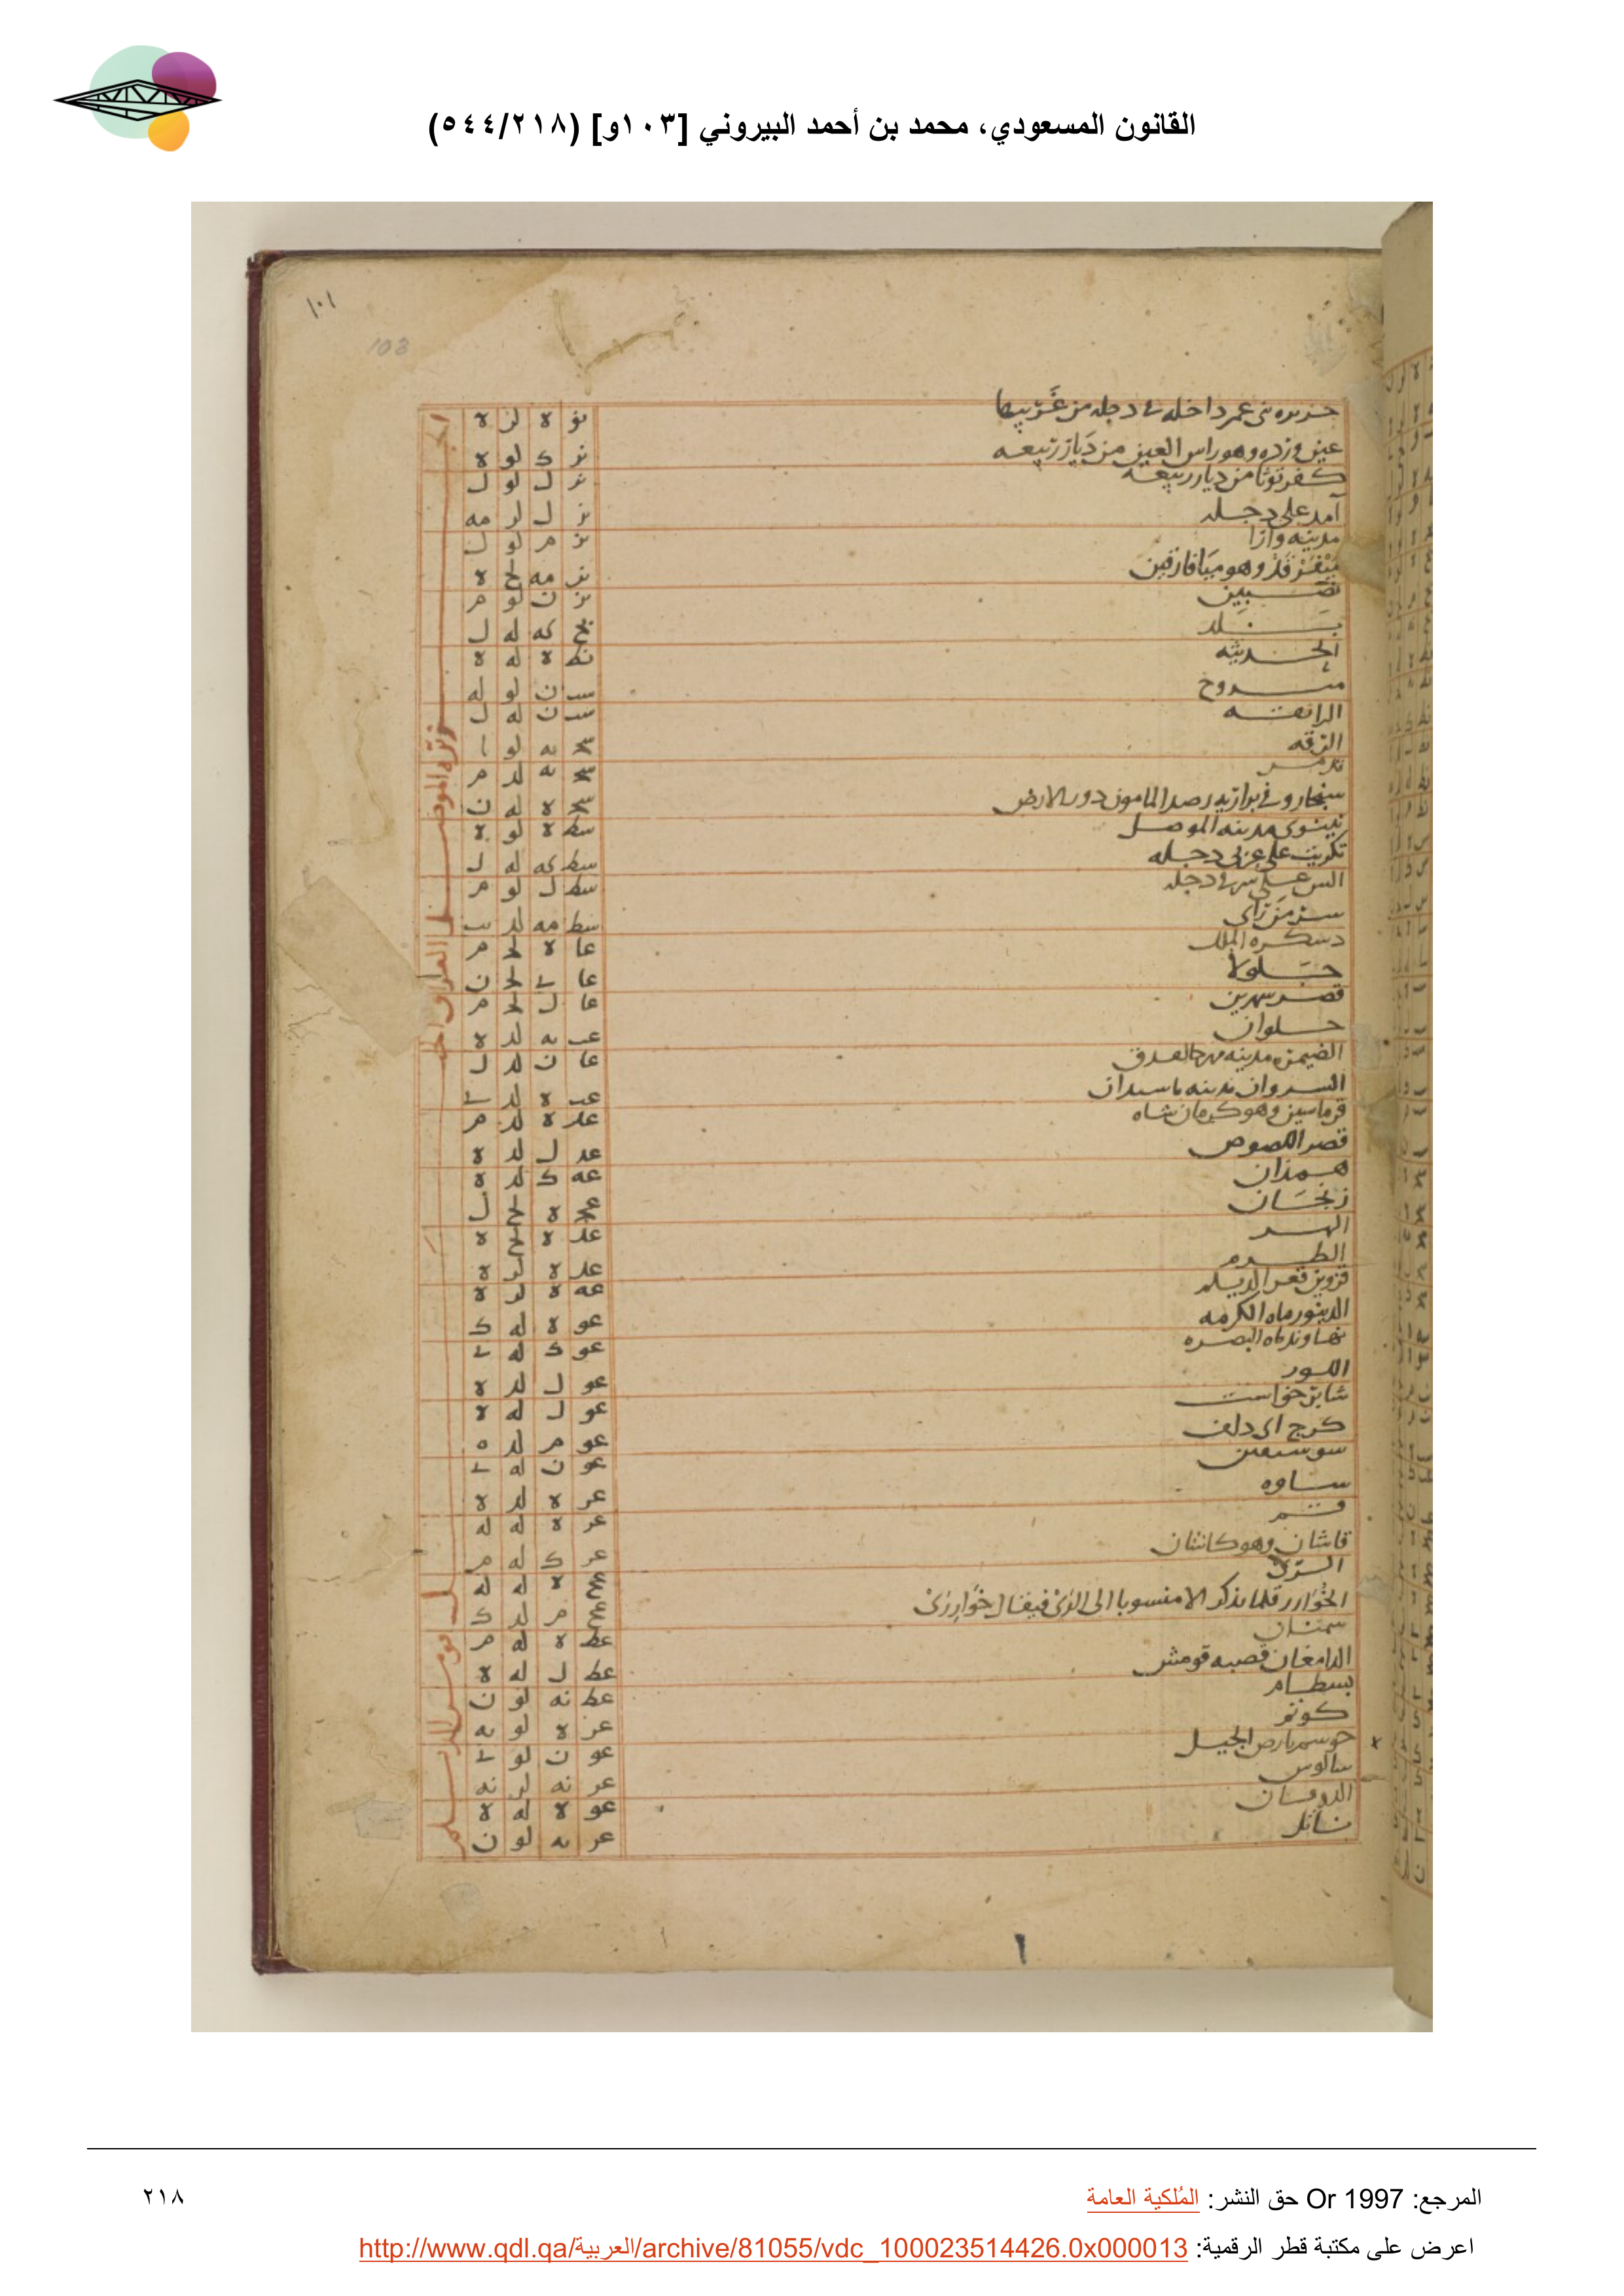 القانون المسعودي، محمد بن أحمد البيروني [١٠٣و] (٥٤٤/٢١٨)
١٠١
103
جزيره بنى عمر داخله فى دجله من غربيها نو ه لز ه
عين ورده وهو راس العين من ديار ربيعه نز ك لو ه
كفرتوثا من ديار ربيعه نز ل لو ل
آمد على دجله نز ل لز مه
مدينه دارا نز م لو ل
وهو ميافارقين نز مه لح ه
نصيبين نز ن لو م
بلد نح كه له ل
الحديثه نط ه له ه
سروج سب ن لو له
الرافقه سب ن له ل
الرقه سج يه لو ا
تدمر سج يه لد م
سنجار وفى براريه رصد المامون دور الارض سج ه له ن
نينوى مدينه الموصل سط ه لو ه
تكريت على غربى دجله سط كه له ل
السن على شرقى دجله سط ل لو م
سر من راى سط مه لد يب
دسكره الملك عا ه لج م
جلولا عا ى لج ن
قصر شيرين عا ل لج م
حلوان عب يه لد ه
الصيمره مدينه مهرجانقذق عا ن لد ل
السيروان مدينه ماسبذان عب ه لد ى
قرماسين وهو كرمان شاه عد ه لد م
قصر اللصوص عد ل لد ه
همذان عه ك لد ه
زنجان عج ه لح ل
ابهر عد ه لح ه
الطرم عد ه لز ه
قزوين ثغر الديلم عه ه لز ه
الدينور ماه الكوفه عو ه له ك
نهاوند ماه البصره عو ك له ى
اللور عو ل لد ه
شابر خواست عو ل له ه
كرج ابى دلف عو م لد ه
سوسقين عو ن له ى
ساوه عز ه لد ه
قم عز ه له له
قاشان وهو كاشان عز ك له م
الرى عح ه له له
الخوار قلما يذكر الا منسوبا الى الرى فيقال خوار رى عح م لد ك
سمنان عط ه له م
الدامغان قصبه قومش عط ل له ه
بسطام عط نه لو ن
كوتم عز ه لو يه
هوسم بارض الجيل عو ن لو ى
سالوس عز نه لز نه
عو ه له ه
ناتل عز يه لو ن
المرجع: Or 1997 حق النشر: المُلكية العامة
٢١٨
اعرض على مكتبة قطر الرقمية: http://www.qdl.qa/العربية/archive/81055/vdc_100023514426.0x000013